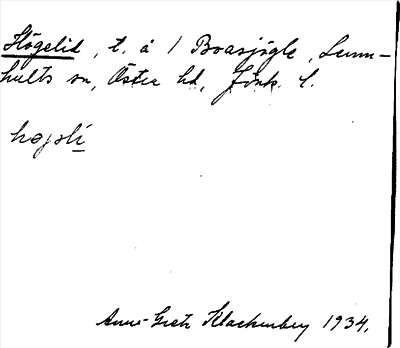 Högelid, t. å 1 Boasjögle, Lemn-
hults sn, Östra hd, Jönk. l.
høgslí
Ann-Gret Klackenberg 1934.